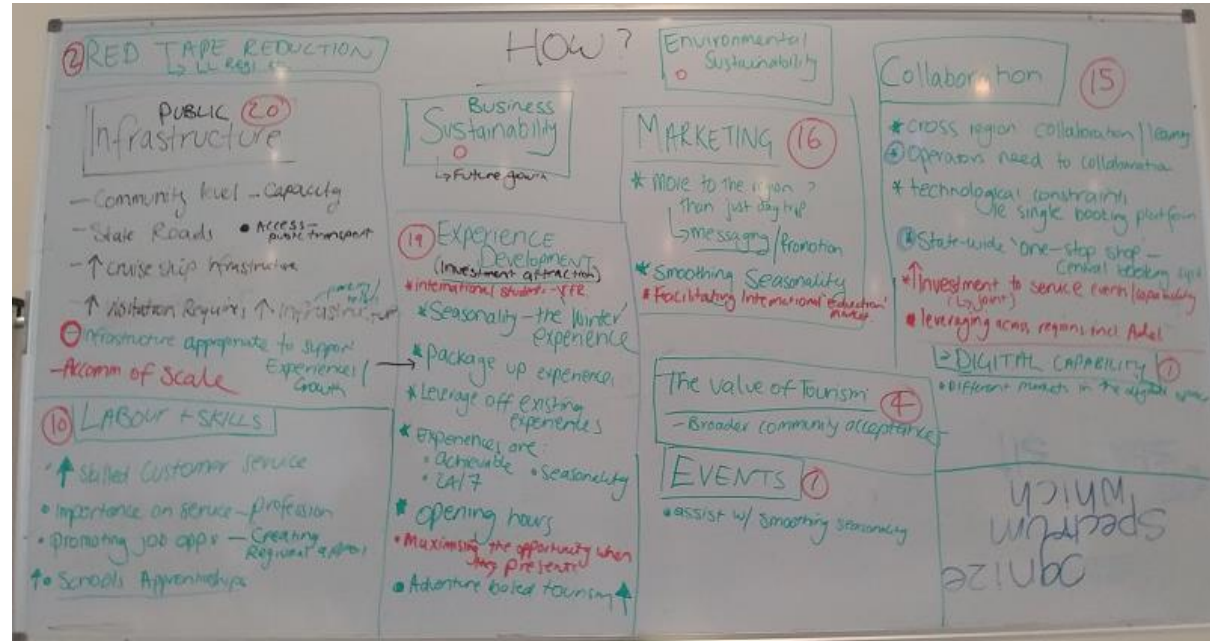 HOW?
② RED TAPE REDUCTION
PUBLIC 20
Infrastructure
- Community level - Capacity
- State Roads • Access - public transport
- ↑ Cruise ship Infrastructure
↑ Visitation Requires ↑ Infrastructure
Infrastructure appropriate to support
Experiences / Growth
- Accomm of Scale
10 LABOUR + SKILLS
↑ Skilled Customer Service
• Importance on service - profession
• promoting job opps - Creating
Regional
↑• Schools Apprenticeships
Business
Sustainability
0
↳ Future growth
19 EXPERIENCE
DEVELOPMENT
(Investment attraction)
* international students - VFR
* Seasonality - the 'Winter'
experience
→ * package up experience
* Leverage off existing
experiences
* Experiences are:
• achievable
• 24/7 • seasonality
* opening hours
• Maximising the opportunity when
they present
• Adventure based tourism ↑
Environmental
Sustainability
0
MARKETING 16
* Move to the region ?
than just day trip
↳ messaging / Promotion
* Smoothing Seasonality
* Facilitating International education
The Value of Tourism 4
- Broader community acceptance -
EVENTS 1
• assist w/ smoothing seasonality
Collaboration 15
* cross region collaboration /
Operators need to collaboration
* technological constraints
ie single booking platform
State-wide 'one-stop shop -
Central booking
↑ Investment to service
(↳ joint)
• leveraging across regions incl Adel
DIGITAL CAPABILITY 1
• Different markets in the digital space
which
spectrum
ognize